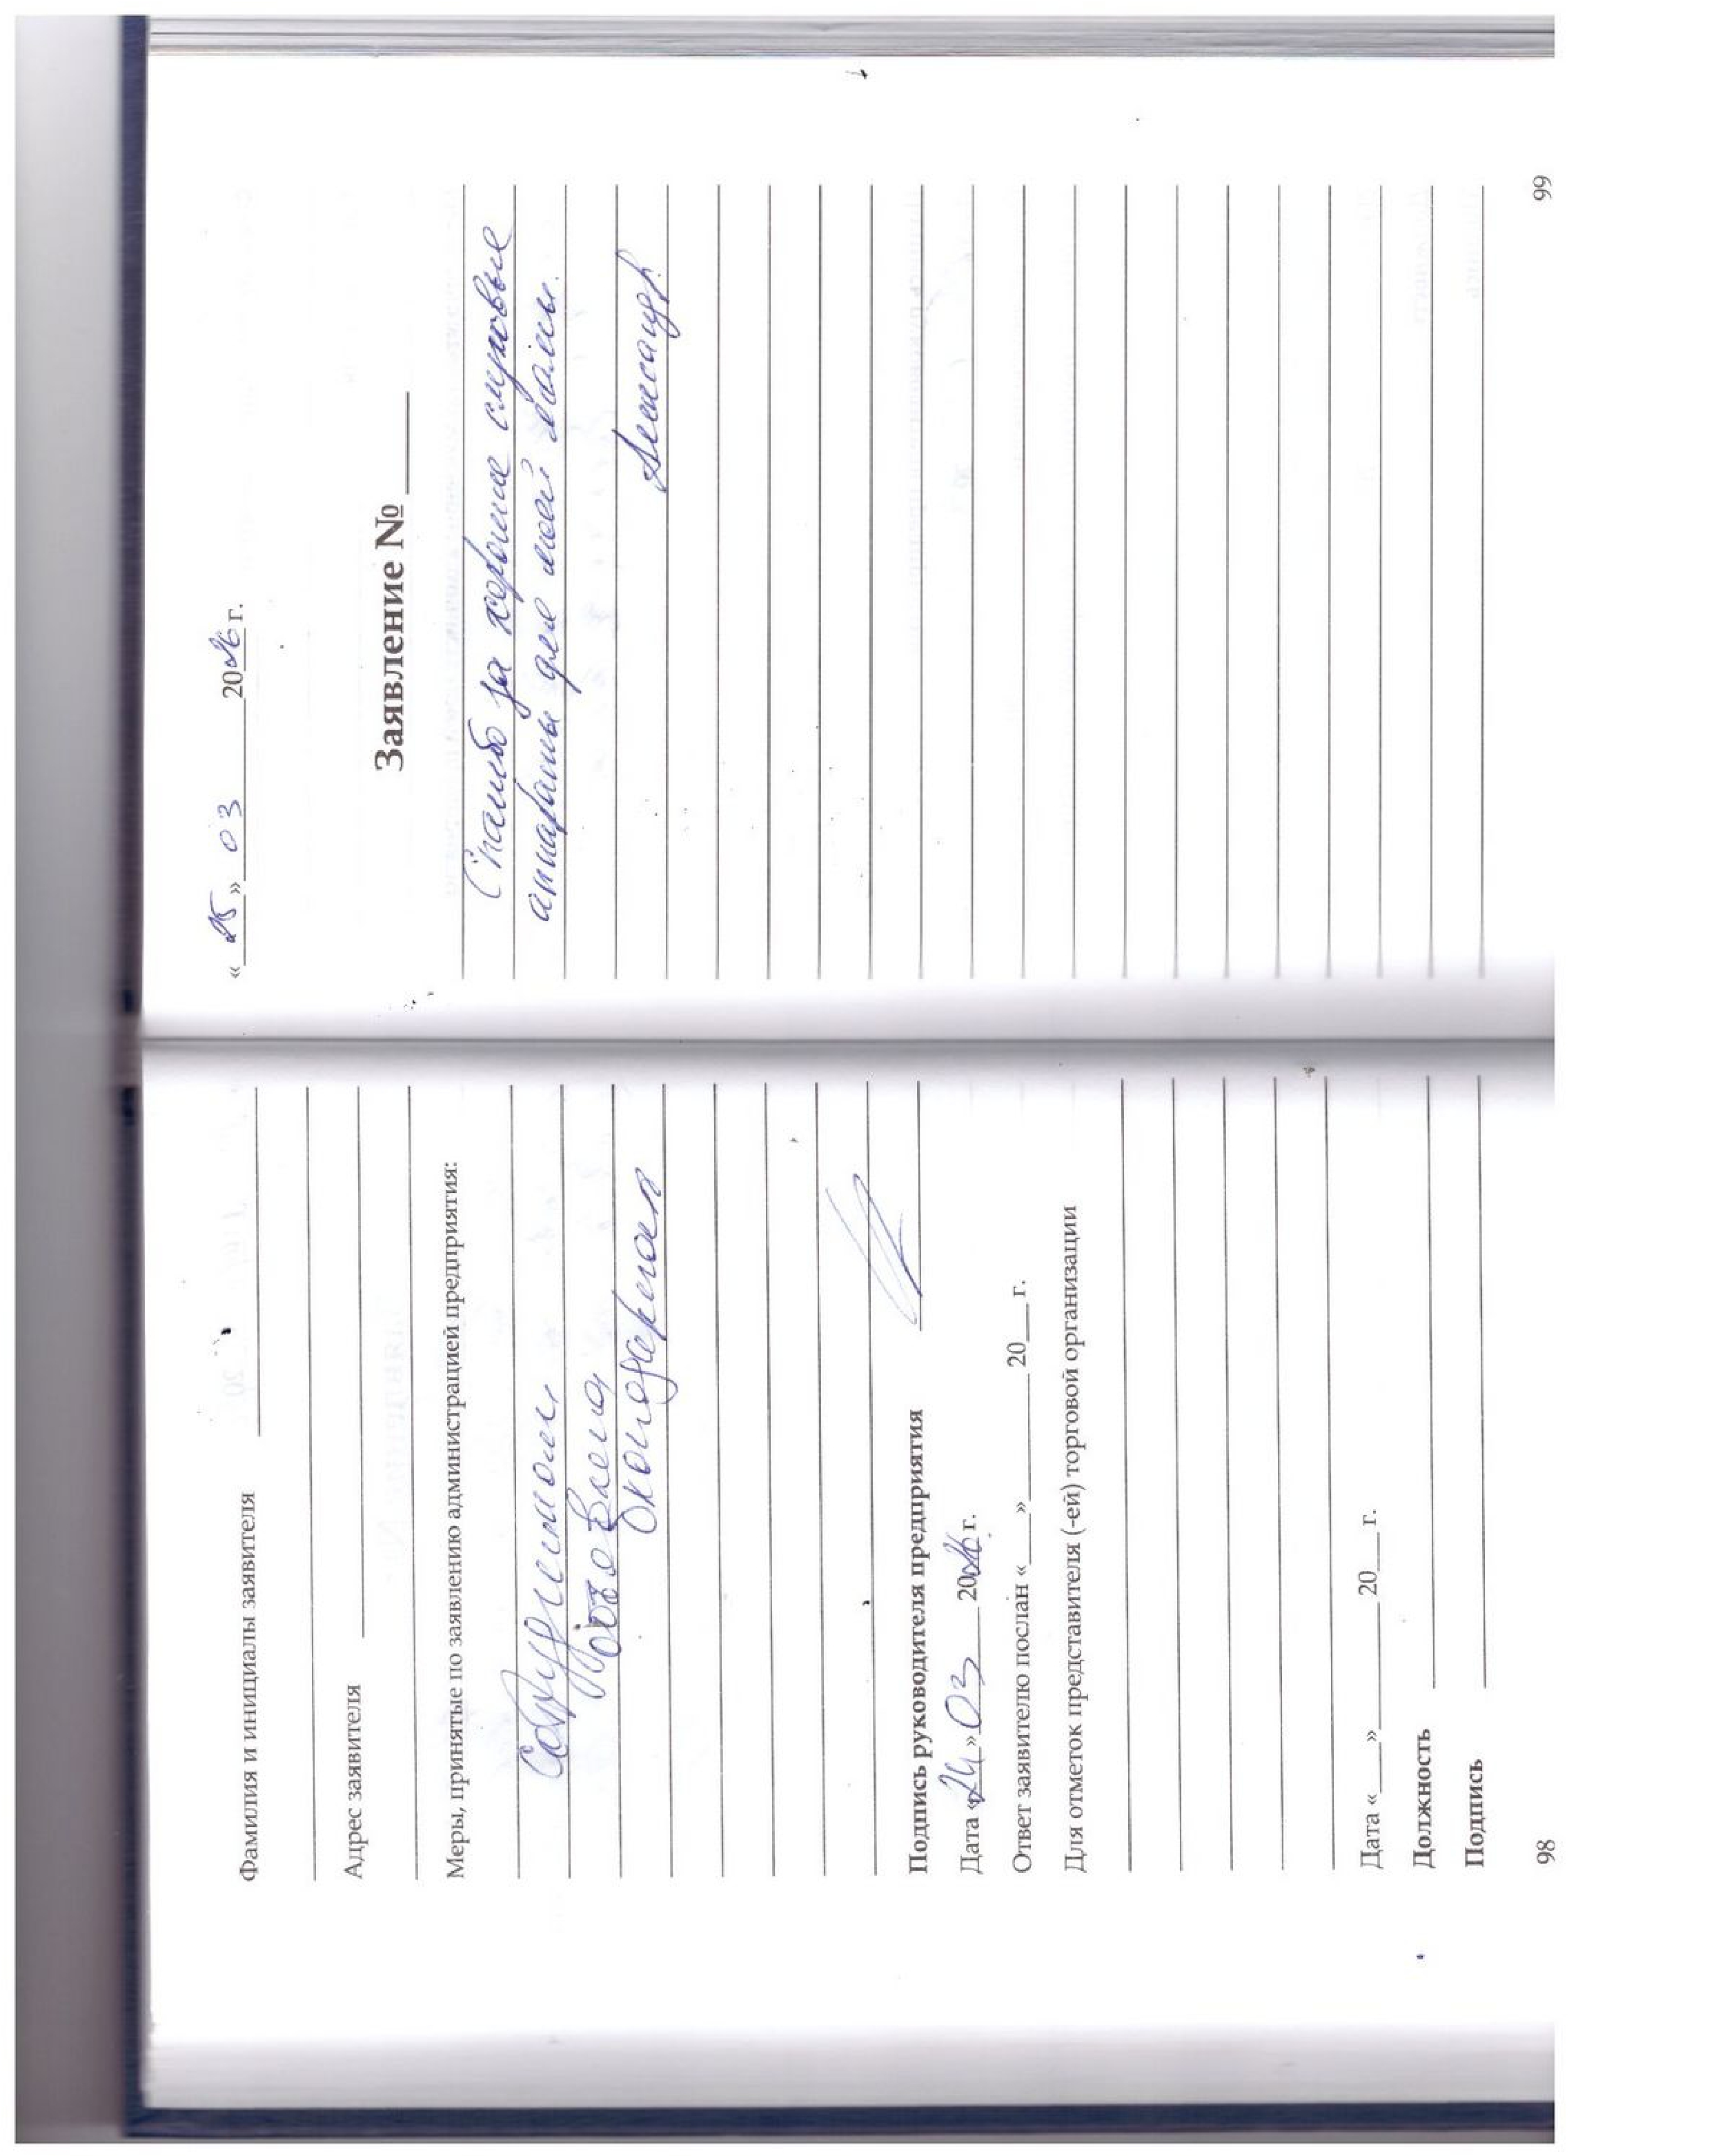 Фамилия и инициалы заявителя
Адрес заявителя
Меры, принятые по заявлению администрацией предприятия:
Сотрудникам
объявлена
благодарность
Подпись руководителя предприятия
Дата «24» 03 2026 г.
Ответ заявителю послан «___» ______ 20___ г.
Для отметок представителя (-ей) торговой организации
Дата «___» ______ 20___ г.
Должность
Подпись
98
«25» 03 2026 г.
Заявление №
Спасибо за хорошие слуховые
аппараты для моей мамы.
Александр
99